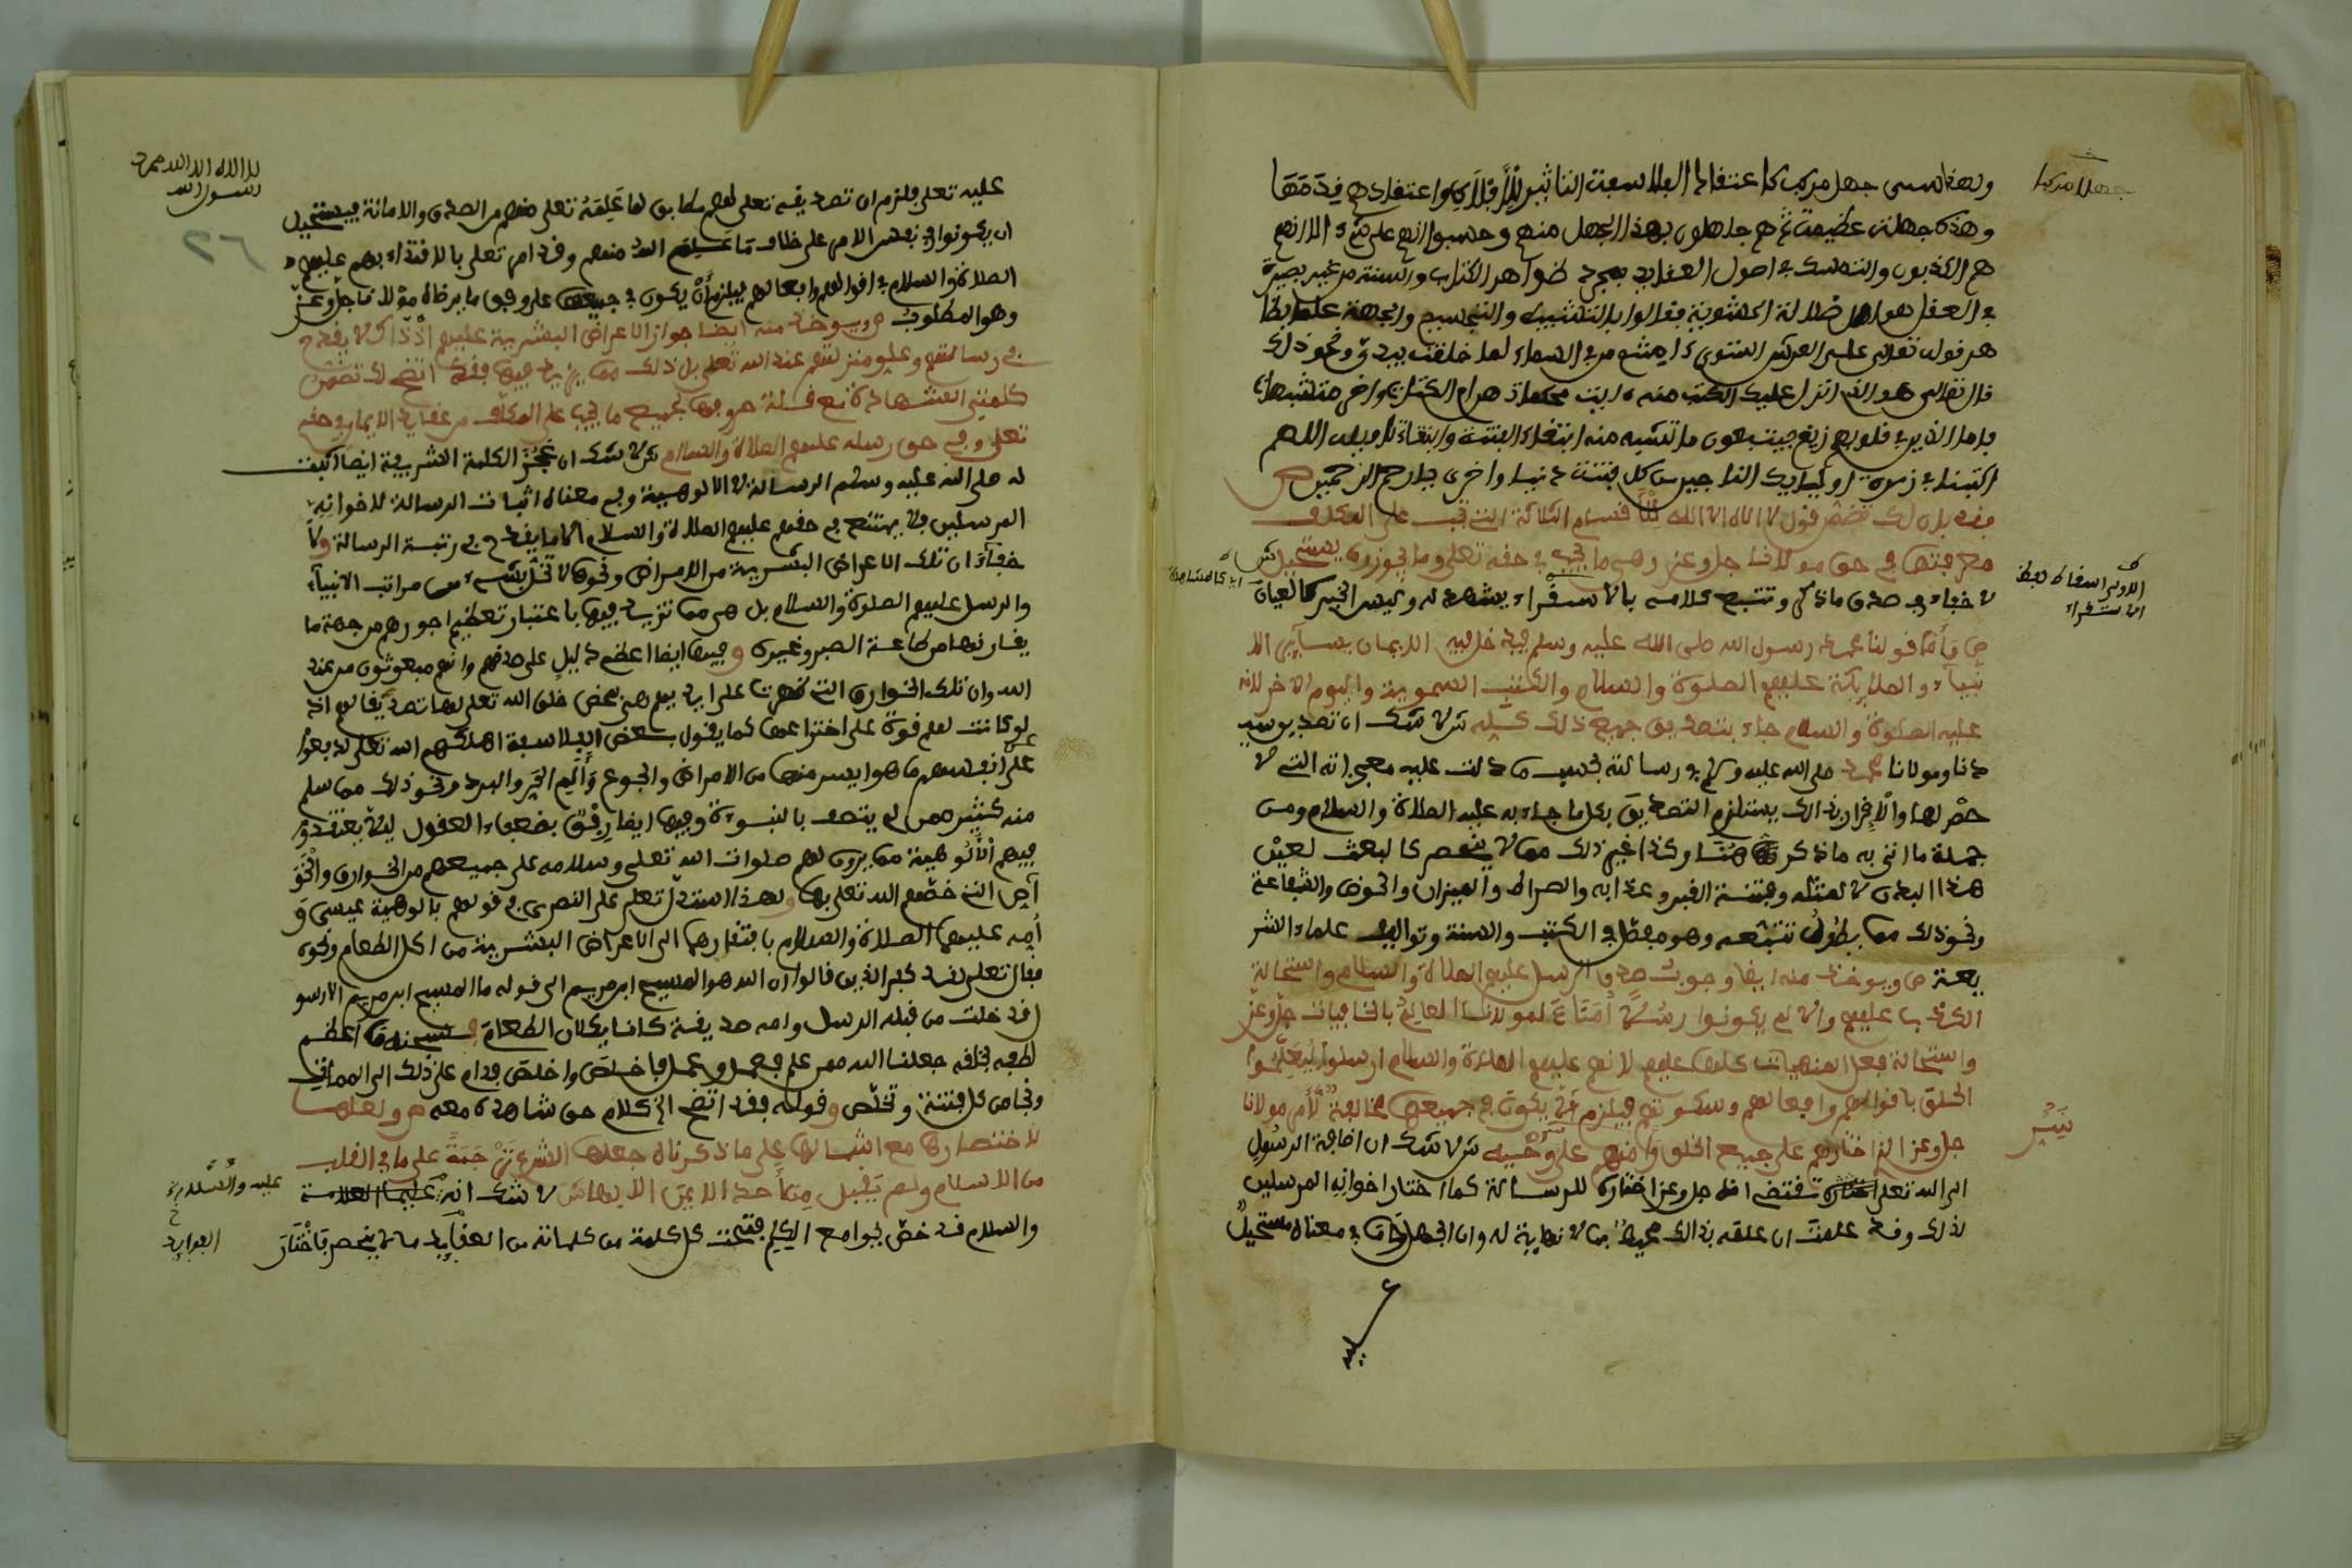 ولهذا سمى جهل مركب كاعتقاد الفلاسفة التأثير للأفلاك واعتقادهم قدمها
جهلا مركبا
وهذه جهلة عظيمة ثم هم جاهلون بهذا الجهل منهم وحسبوا انهم على شيء الا انهم
هم الكذبون والتمسك في اصول العقايد بمجرد ظواهر الكتاب والسنة من غير بصيرة
في العقل هو اصل ضلالة الحشوية فقالوا بالتشبيه والتجسيم والجهة عملا بظا
هر قوله تعالى على العرش استوى ءامنتم من في السماء لما خلقت بيدي ونحو ذلك
قال تعالى هو الذي انزل عليك الكتب منه ءايت محكمات هن ام الكتاب واخر متشبهات
فاما الذين في قلوبهم زيغ فيتبعون ما تشبه منه ابتغاء الفتنة وابتغاء تأويله اللهم
اكتبنا في زمرة اوليايك الناجين من كل فتنة دنيا واخرى يا ارحم الرحمين ص
فقد بان لك تضمن قول لا اله الا الله للأقسام الثلاثة التي تجب على المكلف
معرفتها في حق مولانا جل وعز وهي ما يجب في حقه تعلى وما يجوز وما يستحيل ش
لا خفاء في صدق ما ذكر وتتبع كلامه بالاستقراء يشهد له وليس الخبر كالعيان
الاولى اسقاط لفظ
الاستقراء
اي كالمشاهدة
ص وأما قولنا محمد رسول الله صلى الله عليه وسلم فيدخل فيه الايمان بساير الا
نبياء والملايكة عليهم الصلوة والسلام والكتب السموية واليوم الاخر لانه
عليه الصلوة والسلام جاء بتصديق جميع ذلك كله ش لا شك ان تصديق سيد
دنا ومولانا محمد صلى الله عليه وسلم في رسالته بحسب ما دلت عليه معجزاته التي لا
حصر لها والإقرار بذالك يستلزم التصديق بكل ما جاء به عليه الصلاة والسلام ومن
جملة ما اتى به ما ذكر هنا وكذا غير ذلك مما لا ينحصر كالبعث لعين
هذا البدن لا لمثله وفتنة القبر وعذابه والصراط والميزان والحوض والشفاعة
ونحو ذلك مما يطول تتبعه وهو مفصل في الكتب والسنة وتواليف علماء الشر
يعة ص ويوخذ منه ايضا وجوب صدق الرسل عليهم الصلاة والسلام واستحالة
الكذب عليهم والا لم يكونوا رسلا أمناء لمولانا العالم بالخافيات جل وعز
واستحالة فعل المنهيات كلها عليهم لانهم عليهم الصلاة والسلام ارسلوا ليعلموا
الخلق باقوالهم وافعالهم وسكوتهم فيلزم أن لا يكون في جميعها مخالفة لأمر مولانا
جل وعز الذي اختارهم على جميع الخلق وأمنهم على وحيه ش لا شك ان اضافة الرسول
الى الله تعلى تقتضي انه جل وعز اختاره للرسالة كما اختار اخوانه المرسلين
لذلك وقد علمت ان علمه بذالك محيط بما لا نهاية له وان الجهل وما في معناه مستحيل
عليه
لا اله الا الله محمد
رسول الله
٢٦
عليه تعلى فلزم ان تصديقه تعلى لهم مطابق لما علمه تعلى منهم من الصدق والامانة فيستحيل
ان يكونوا في نفس الامر على خلاف ما علمه الله منهم وقد امر تعلى بالاقتداء بهم عليهم
الصلاة والسلام في اقوالهم وافعالهم فيلزم أن يكون في جميعها على وفق ما يرضاه مولانا جل وعز
وهو المطلوب ص ويوخذ منه ايضا جواز الاعراض البشرية عليهم اذ ذاك لا يقدح
في رسالتهم وعلو منزلتهم عند الله تعلى بل ذلك مما يزيد فيها فقد اتضح لك تضمن
كلمتي الشهادة مع قلة حروفها لجميع ما يجب على المكلف من عقايد الايمان في حقه
تعلى وفي حق رسله عليهم الصلاة والسلام ش لا شك ان عجز الكلمة الشريفة ايضا اثبت
له صلى الله عليه وسلم الرسالة لا الالوهية وفي معناه اثبات الرسالة لاخوانه
المرسلين فلا يمتنع في حقهم عليهم الصلاة والسلام الا ما يقدح في رتبة الرسالة ولا
خفاء ان تلك الاعراض البشرية من الامراض ونحوها لا تخل بشيء من مراتب الانبياء
والرسل عليهم الصلوة والسلام بل هي مما تزيد فيها باعتبار تعظيم اجورهم من جهة ما
يقارنها من طاعة الصبر وغيره وفيها ايضا اعظم دليل على صدقهم وانهم مبعوثون من عند
الله وان تلك الخوارق التي ظهرت على ايديهم هي بمحض خلق الله تعلى لها تصديقا لهم اذ
لو كانت لهم قوة على اختراعها كما يقول بعض الفلاسفة اهلكهم الله تعلى لدفعوا
على أنفسهم ما هو ايسر منها من الامراض والجوع وألم الحر والبرد ونحو ذلك مما سلم
منه كثير ممن لم يتصف بالنبوءة وفيها ايضا رفق بضعفاء العقول ليلا يعتقدوا
فيهم الألوهية مما يرون لهم صلوات الله تعلى وسلامه على جميعهم من الخوارق والخو
اص التي خصهم الله تعلى بها ولهذا استدل تعلى على النصرى في قولهم بالوهية عيسى و
أمه عليهما الصلاة والسلام بافتقارهما الى الاعراض البشرية من اكل الطعام ونحوه
فقال تعلى لقد كفر الذين قالوا ان الله هو المسيح ابن مريم الى قوله ما المسيح ابن مريم الا رسو
ل قد خلت من قبله الرسل وامه صديقة كانا ياكلان الطعام فسبحنه ما اعظم
لطفه بخلقه جعلنا الله ممن علم فعمل وعمل فاخلص واخلص فدام على ذلك الى الممات
ونجا من كل فتنة وتخلص وقوله فقد اتضح الى كلام حق شاهده معه ص ولعلها
لاختصارها مع اشتمالها على ما ذكرناه جعلها الشرع ترجمة على ما في القلب
من الاسلام ولم يقبل من أحد الايمن الا بها ش لا شك انه
عليه والصلاة
والسلام قد خص بجوامع الكلم فتحت كل كلمة من كلماته من العقايد ما لا ينحصر فاختار
الفوايد